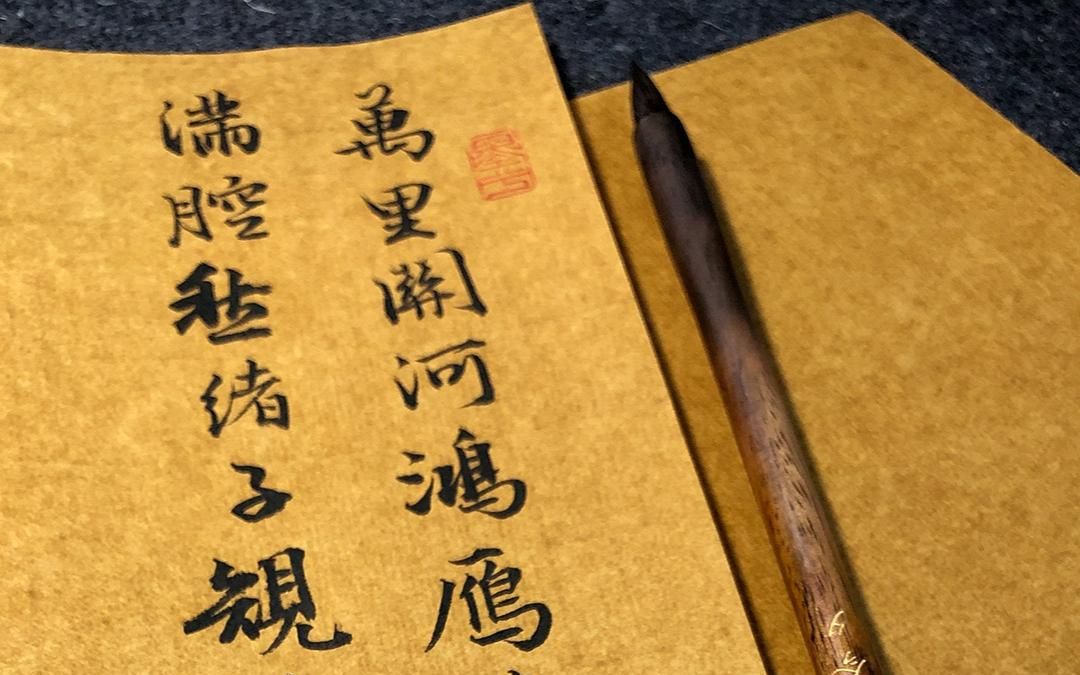 萬里關河鴻雁
滿腔愁緒子規